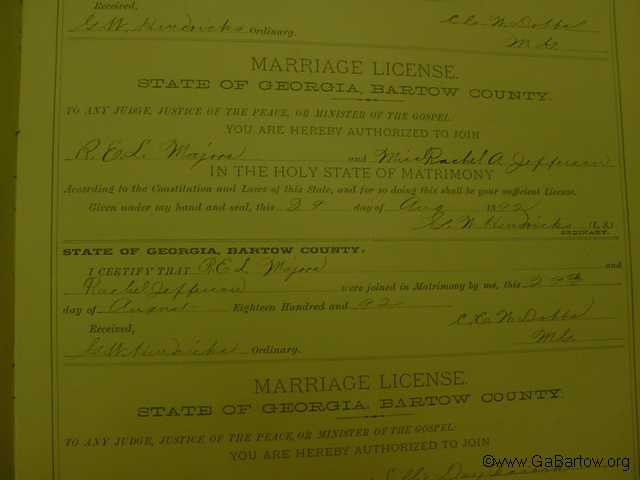 Received,
G W Hendricks Ordinary.
C. C. N. Dobbs
M G
MARRIAGE LICENSE.
STATE OF GEORGIA, BARTOW COUNTY.
TO ANY JUDGE, JUSTICE OF THE PEACE, OR MINISTER OF THE GOSPEL:
YOU ARE HEREBY AUTHORIZED TO JOIN
R. E. L. Majors and Miss Rachel A. Jefferson
IN THE HOLY STATE OF MATRIMONY
According to the Constitution and Laws of this State, and for so doing this shall be your sufficient License.
Given under my hand and seal, this 29 day of Aug 1892
G. W Hendricks (L. S.)
ORDINARY.
STATE OF GEORGIA, BARTOW COUNTY:
I CERTIFY THAT R E L Majors and
Rachel Jefferson were joined in Matrimony by me, this 29th
day of August Eighteen Hundred and 92
C. C. N. Dobbs
M G.
Received,
G W Hendricks Ordinary.
MARRIAGE LICENSE.
STATE OF GEORGIA, BARTOW COUNTY.
TO ANY JUDGE, JUSTICE OF THE PEACE, OR MINISTER OF THE GOSPEL:
YOU ARE HEREBY AUTHORIZED TO JOIN
©www.GaBartow.org